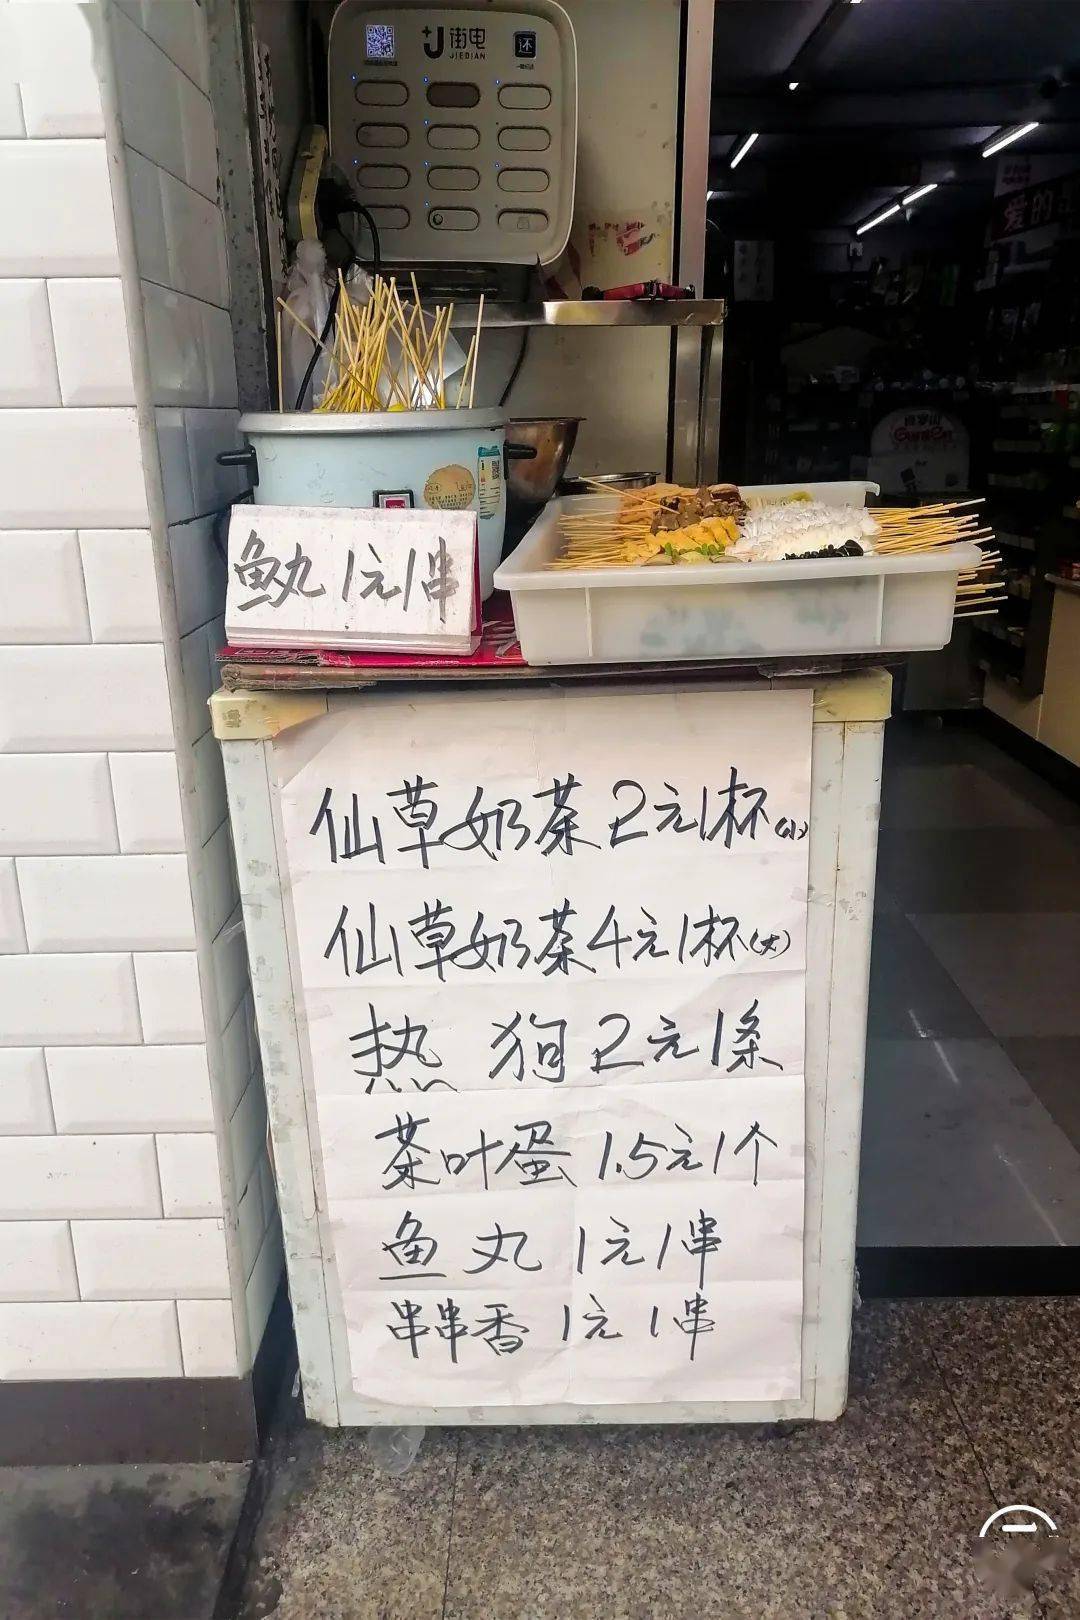 街电
JIEDIAN
还
爱的
鱼丸1元1串
仙草奶茶2元1杯(小)
仙草奶茶4元1杯(大)
热狗2元1条
茶叶蛋1.5元1个
鱼丸1元1串
串串香1元1串